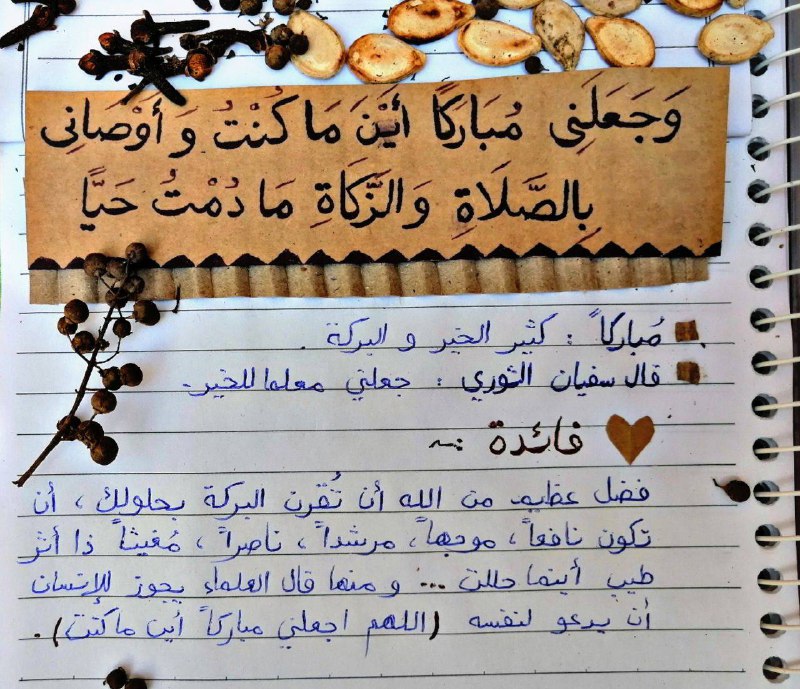 وَجَعَلَنِى مُبَارَكًا أَيْنَ مَا كُنْتُ وَ أَوْصَانِى
بِالصَّلَاةِ وَالزَّكَاةِ مَا دُمْتُ حَيًّا
مُباركاً : كثير الخير و البركة .
قال سفيان الثوري : جعلني معلما للخير .
فائدة :~
فضل عظيم من الله أن تُقرن البركة بحلولك ، أن
تكون نافعاً ، موجهاً ، مرشداً ، ناصراً ، مُغيثاً ذا أثر
طيب أينما حللت ... و منها قال العلماء يجوز للإنسان
أن يدعو لنفسه (اللهم اجعلني مباركاً أين ما كنت) .